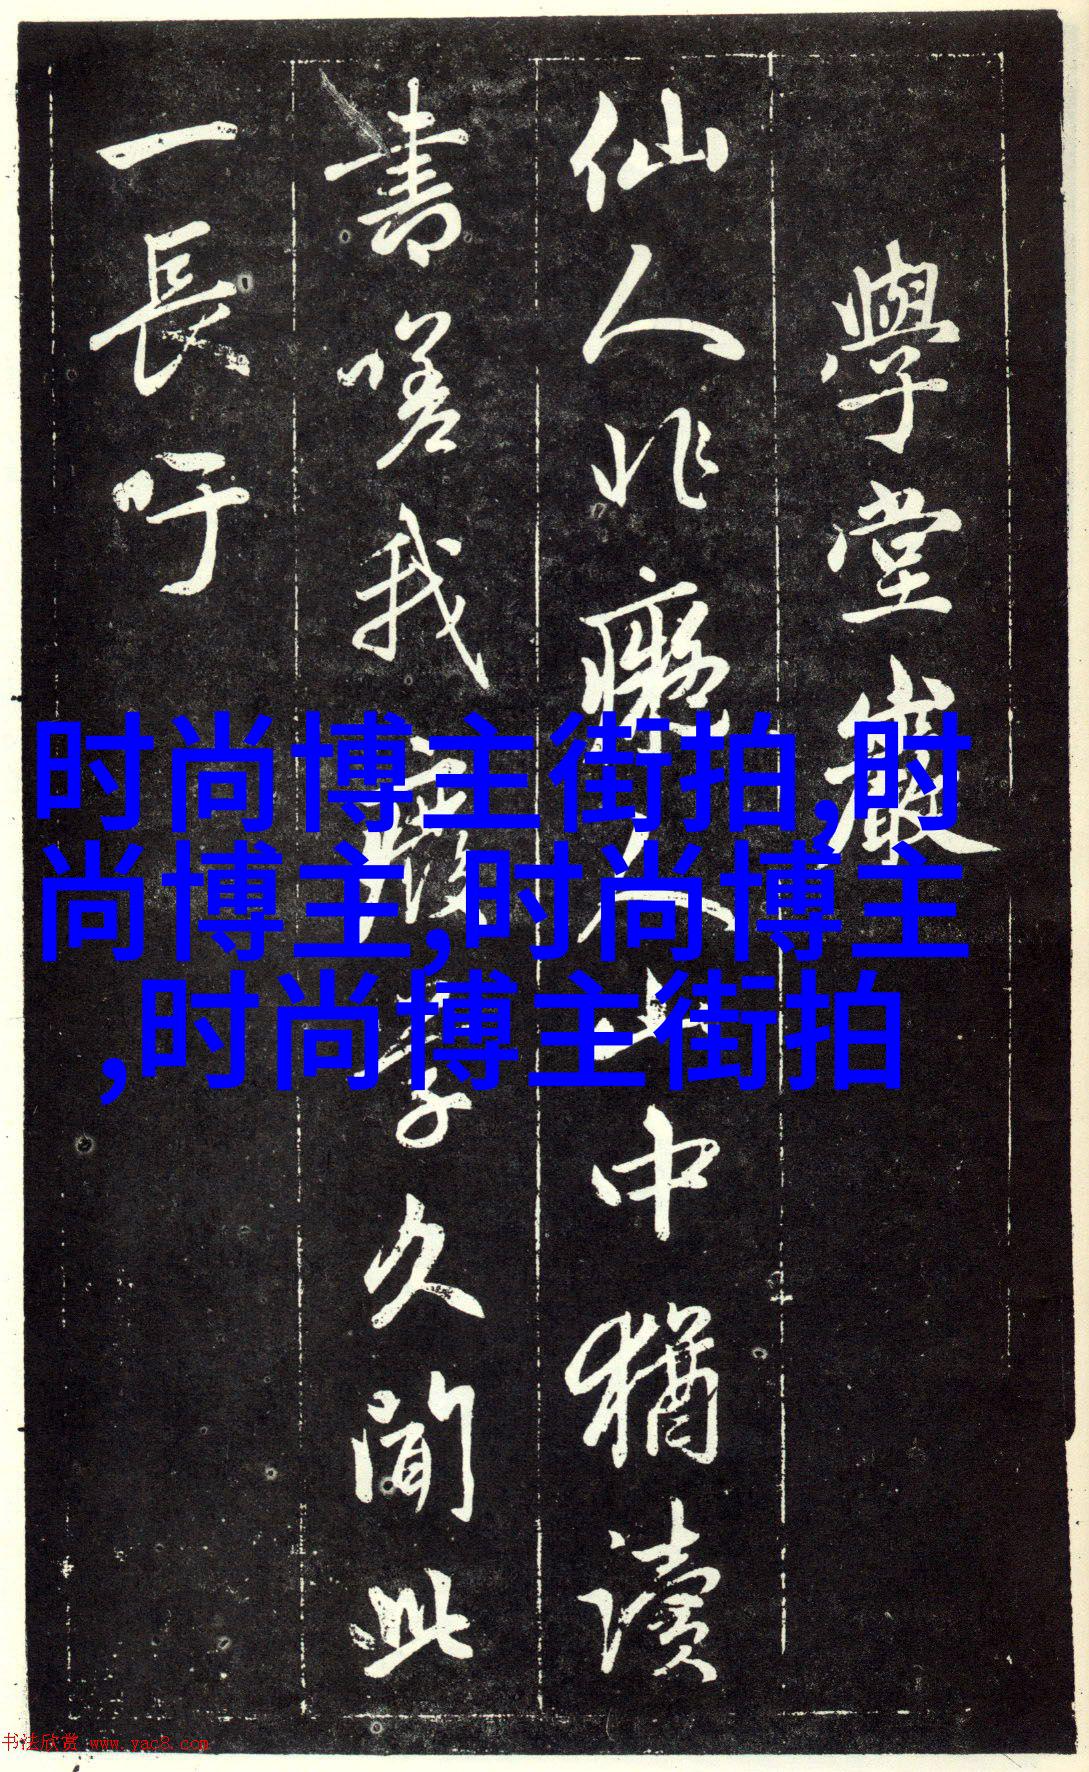 學堂巖
仙人非癡人山中猶讀
書嗟我廢學久聞此
一長吁
时尚博主街拍,时
尚博主,时尚博主
,时尚博主街拍
书法欣赏 www.yac8.com